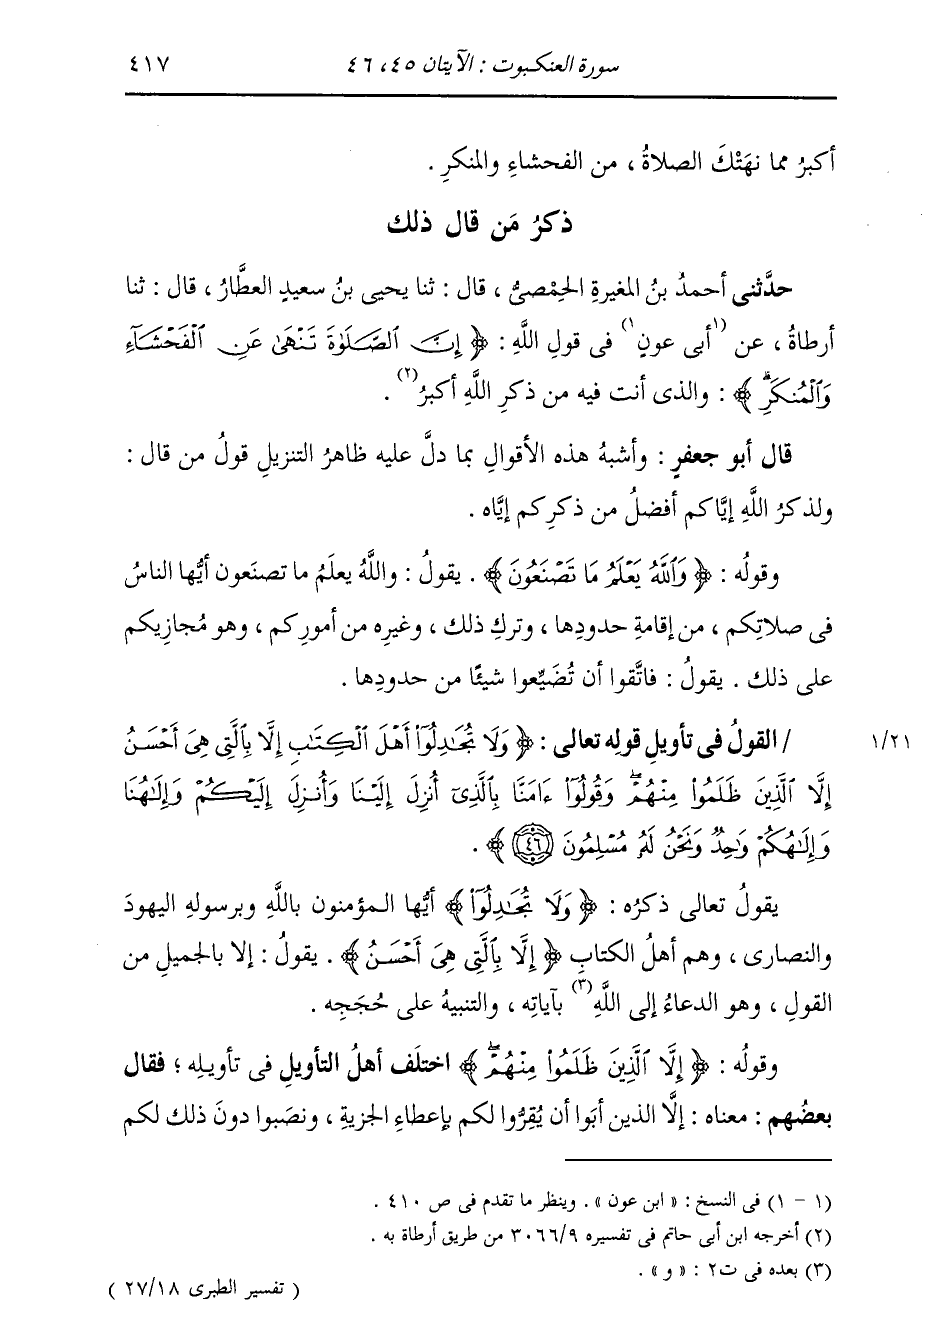 سورة العنكبوت : الآيتان ٤٥، ٤٦ ٤١٧
أكبرُ مما نهَتْكَ الصلاةُ ، من الفحشاءِ والمنكرِ .
ذكرُ مَن قال ذلك
حدَّثنى أحمدُ بنُ المغيرةِ الحِمْصىُّ ، قال : ثنا يحيى بنُ سعيدٍ العطَّارُ ، قال : ثنا
أرطاةُ ، عن (١أبى عونٍ١) فى قولِ اللَّهِ : ﴿ إِنَّ ٱلصَّلَوٰةَ تَنْهَىٰ عَنِ ٱلْفَحْشَآءِ
وَٱلْمُنكَرِۗ ﴾ : والذى أنت فيه من ذكرِ اللَّهِ أكبرُ(٢) .
قال أبو جعفرٍ : وأشبهُ هذه الأقوالِ بما دلَّ عليه ظاهرُ التنزيلِ قولُ من قال :
ولذكرُ اللَّهِ إيَّاكم أفضلُ من ذكرِكم إيَّاه .
وقولُه : ﴿ وَٱللَّهُ يَعْلَمُ مَا تَصْنَعُونَ ﴾ . يقولُ : واللَّهُ يعلَمُ ما تصنَعون أيُّها الناسُ
فى صلاتِكم ، من إقامةِ حدودِها ، وتركِ ذلك ، وغيرِه من أمورِكم ، وهو مُجازِيكم
على ذلك . يقولُ : فاتَّقوا أن تُضَيِّعوا شيئًا من حدودِها .
/ القولُ فى تأويلِ قولِه تعالى : ﴿ وَلَا تُجَٰدِلُوٓا۟ أَهْلَ ٱلْكِتَٰبِ إِلَّا بِٱلَّتِى هِىَ أَحْسَنُ ١/٢١
إِلَّا ٱلَّذِينَ ظَلَمُوا۟ مِنْهُمْۖ وَقُولُوٓا۟ ءَامَنَّا بِٱلَّذِىٓ أُنزِلَ إِلَيْنَا وَأُنزِلَ إِلَيْكُمْ وَإِلَٰهُنَا
وَإِلَٰهُكُمْ وَٰحِدٌ وَنَحْنُ لَهُۥ مُسْلِمُونَ ٤٦ ﴾ .
يقولُ تعالى ذكرُه : ﴿ وَلَا تُجَٰدِلُوٓا۟ ﴾ أيُّها المؤمنون باللَّهِ وبرسولهِ اليهودَ
والنصارى ، وهم أهلُ الكتابِ ﴿ إِلَّا بِٱلَّتِى هِىَ أَحْسَنُ ﴾ . يقولُ : إلا بالجميلِ من
القولِ ، وهو الدعاءُ إلى اللَّهِ(٣) بآياتِه ، والتنبيهُ على حُجَجِه .
وقولُه : ﴿ إِلَّا ٱلَّذِينَ ظَلَمُوا۟ مِنْهُمْۖ ﴾ اختلَف أهلُ التأويلِ فى تأويلِه ؛ فقال
بعضُهم : معناه : إلَّا الذين أبَوا أن يُقِرُّوا لكم بإعطاءِ الجزيةِ ، ونصَبوا دونَ ذلك لكم
(١ - ١) فى النسخ : « ابن عون » . وينظر ما تقدم فى ص ٤١٠ .
(٢) أخرجه ابن أبى حاتم فى تفسيره ٣٠٦٦/٩ من طريق أرطاة به .
(٣) بعده فى ت٢ : « و » .
( تفسير الطبرى ٢٧/١٨ )